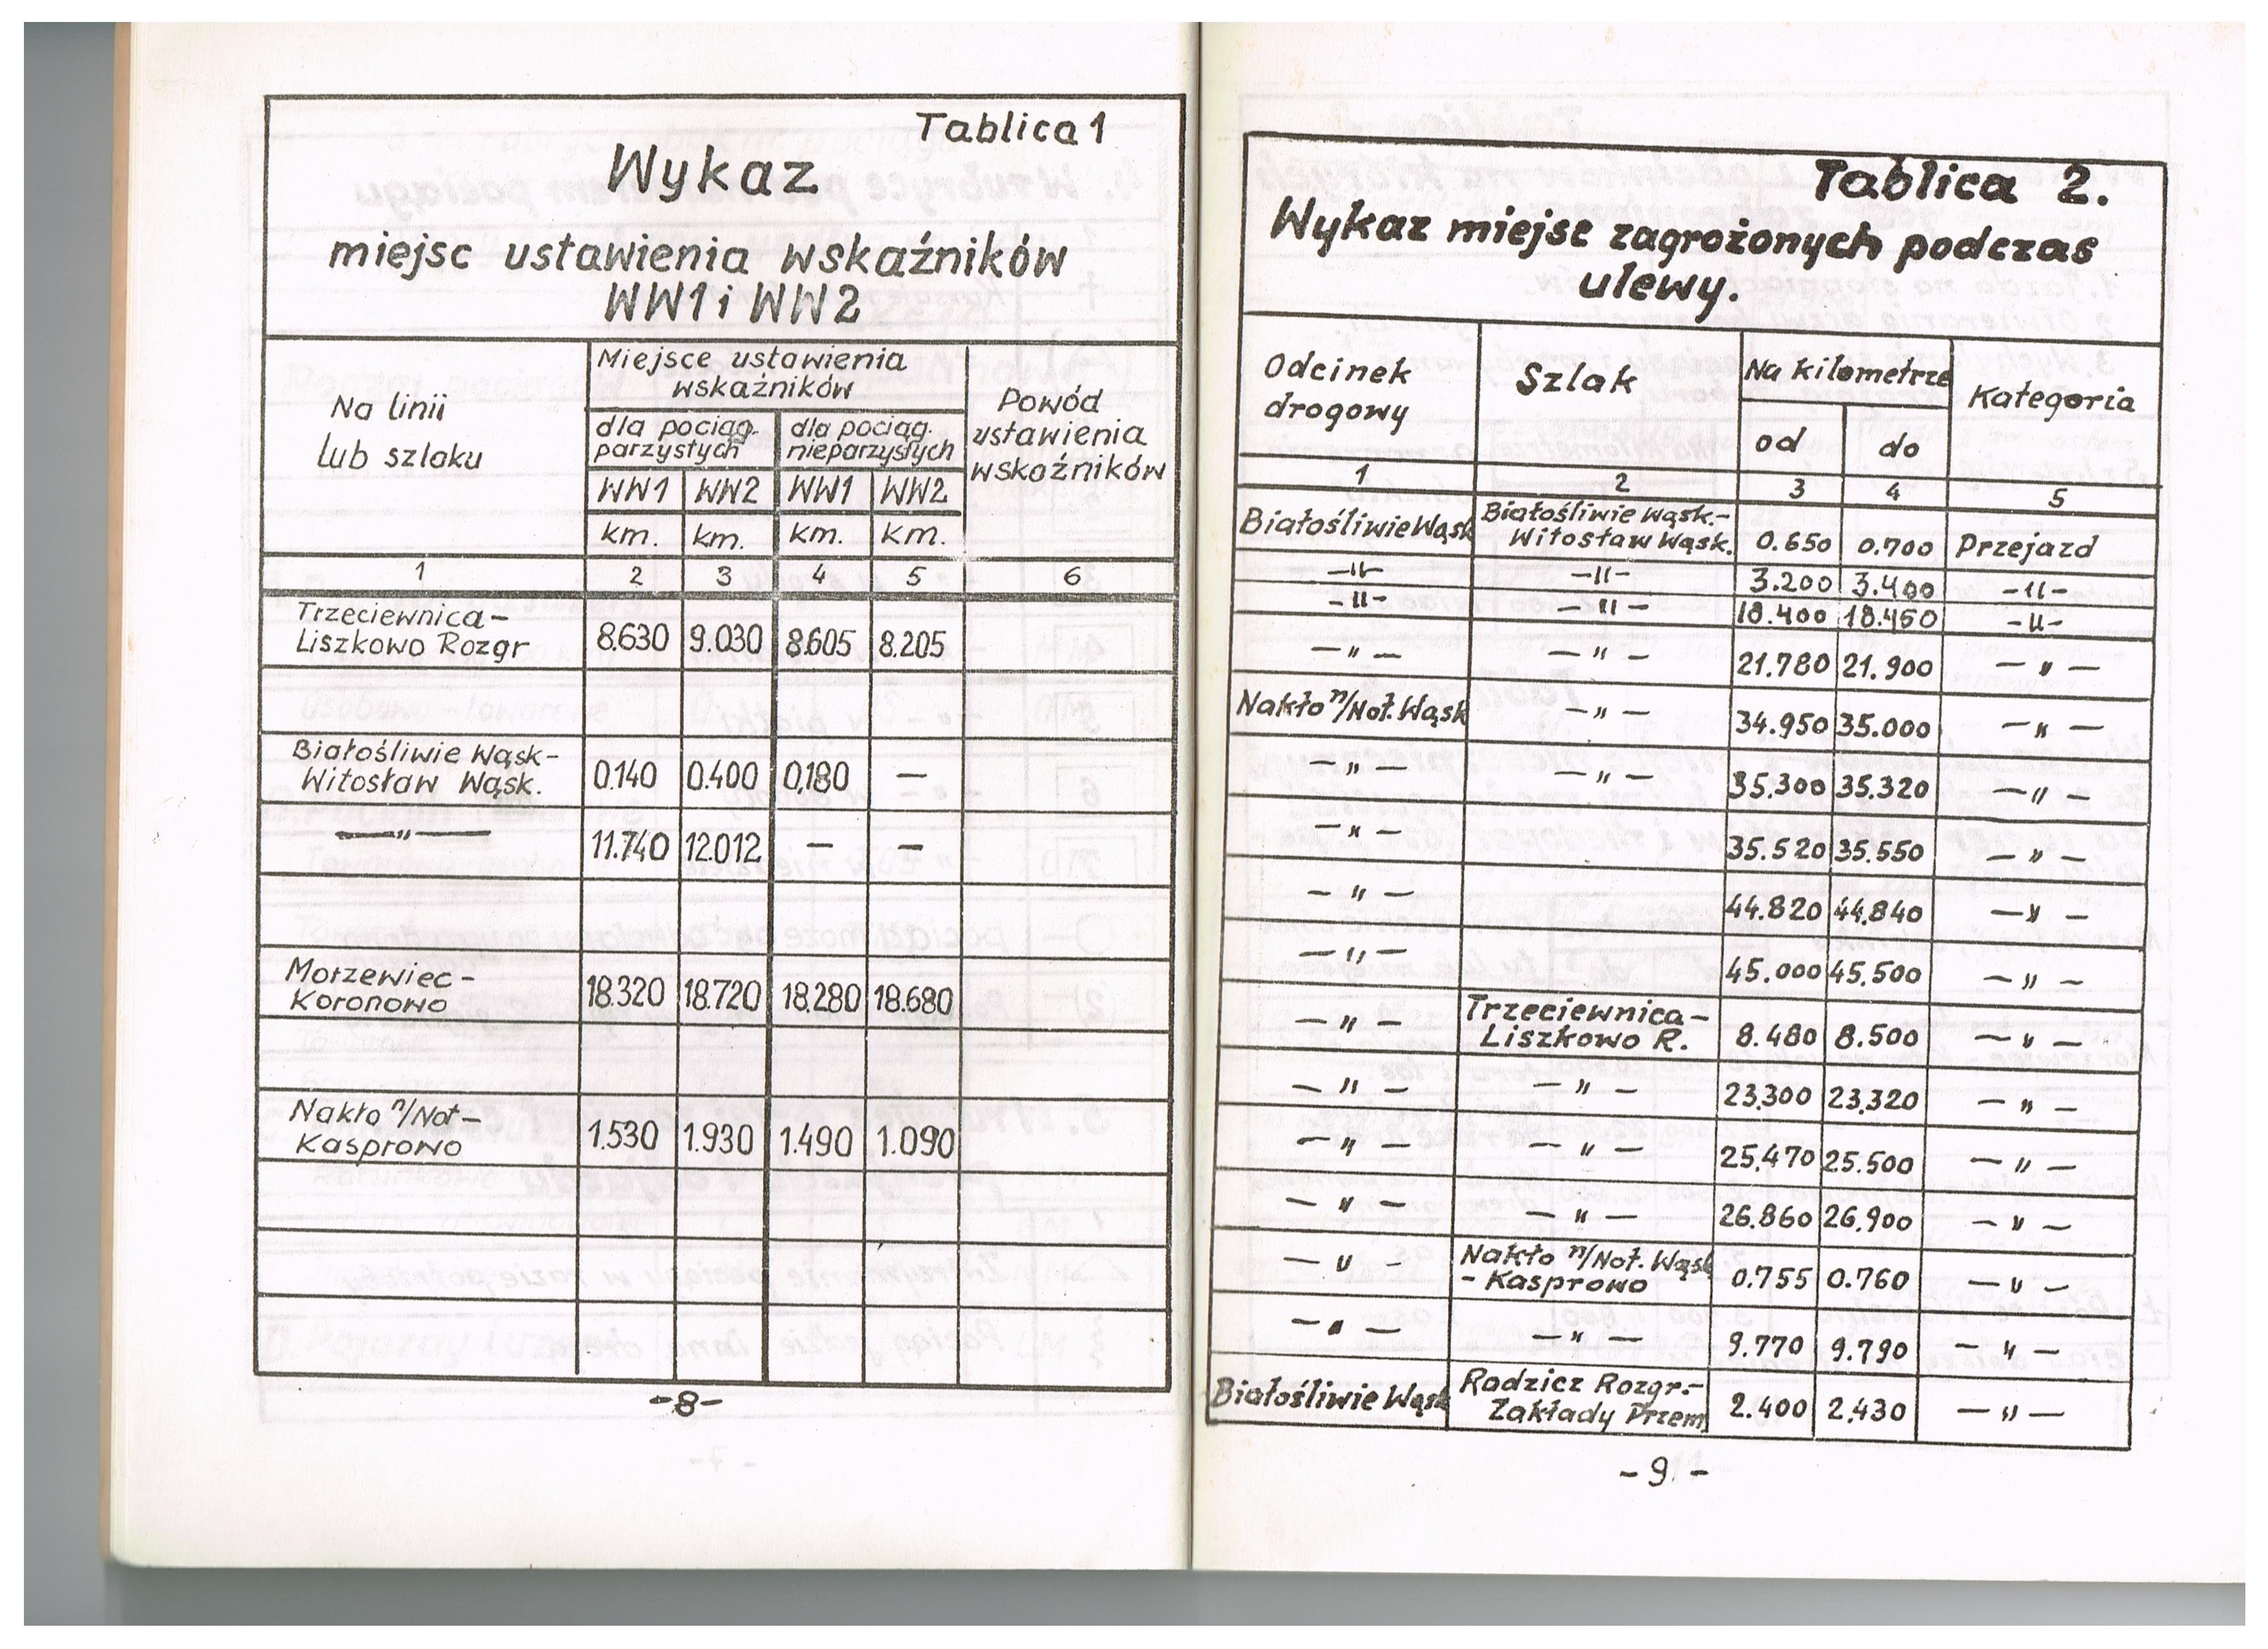 Tablica 1
Wykaz
miejsc ustawienia wskaźników
WW1 i WW2
Na linii
lub szlaku
Miejsce ustawienia
wskaźników
dla pociąg.
parzystych
dla pociąg.
nieparzystych
Powód
ustawienia
wskaźników
WW1 WW2 WW1 WW2
km. km. km. km.
1 2 3 4 5 6
Trzeciewnica-
Liszkowo Rozgr 8.630 9.030 8.605 8.205
Białośliwie Wąsk-
Witosław Wąsk. 0.140 0.400 0,180 —
—"— 11.740 12.012 — —
Morzewiec-
Koronowo 18.320 18.720 18.280 18.680
Nakło n/Not-
Kasprowo 1.530 1.930 1.490 1.090
-8-
Tablica 2.
Wykaz miejsc zagrożonych podczas
ulewy.
Odcinek
drogowy
Szlak
Na kilometrze
od do
Kategoria
1 2 3 4 5
Białośliwie Wąsk Białośliwie Wąsk.-
Witosław Wąsk. 0.650 0.700 Przejazd
-"- -"- 3.200 3.400 -"-
-"- -"- 18.400 18.450 -"-
-"- -"- 21.780 21.900 -"-
Nakło n/Not. Wąsk -"- 34.950 35.000 -"-
-"- -"- 35.300 35.320 -"-
-"- 35.520 35.550 -"-
-"- 44.820 44.840 -"-
-"- 45.000 45.500 -"-
-"- Trzeciewnica-
Liszkowo R. 8.480 8.500 -"-
-"- -"- 23.300 23.320 -"-
-"- -"- 25.470 25.500 -"-
-"- -"- 26.860 26.900 -"-
-"- Nakło n/Not. Wąsk
- Kasprowo 0.755 0.760 -"-
-"- -"- 9.770 9.790 -"-
Białośliwie Wąsk Radzicz Rozgr.-
Zakłady Przem 2.400 2.430 -"-
-9.-